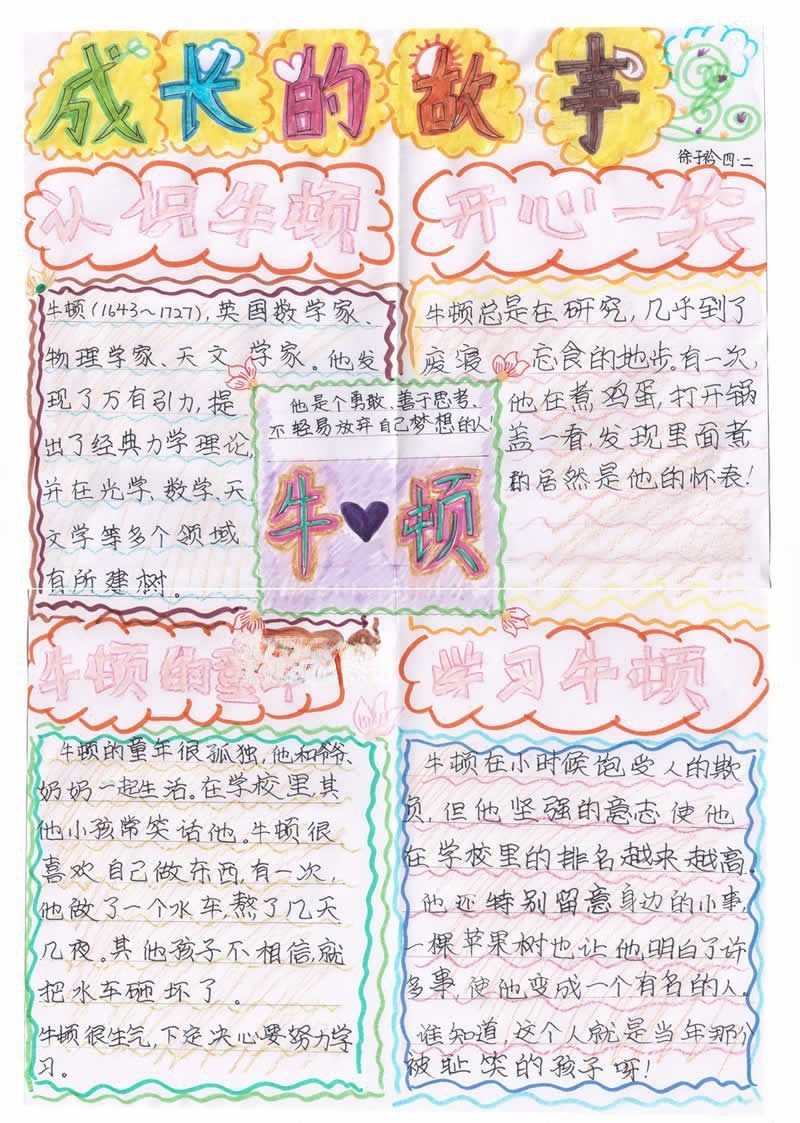 成长的故事
徐子衿 四·二
认识牛顿
牛顿(1643～1727),英国数学家、
物理学家、天文学家。他发
现了万有引力,提
出了经典力学理论,
并在光学、数学、天
文学等多个领域
有所建树。
开心一笑
牛顿总是在研究,几乎到了
废寝忘食的地步。有一次,
他在煮鸡蛋,打开锅
盖一看,发现里面煮
的居然是他的怀表!
他是个勇敢、善于思考、
不轻易放弃自己梦想的人!
牛顿
牛顿的童年
牛顿的童年很孤独,他和爷爷、
奶奶一起生活。在学校里,其
他小孩常笑话他。牛顿很
喜欢自己做东西,有一次,
他做了一个水车,熬了几天
几夜。其他孩子不相信,就
把水车砸坏了。
牛顿很生气,下定决心要努力学
习。
学习牛顿
牛顿在小时候饱受人的欺
负,但他坚强的意志使他
在学校里的排名越来越高。
他还特别留意身边的小事,
一棵苹果树也让他明白了许
多事,使他变成一个有名的人。
谁知道,这个人就是当年那个
被耻笑的孩子呀!